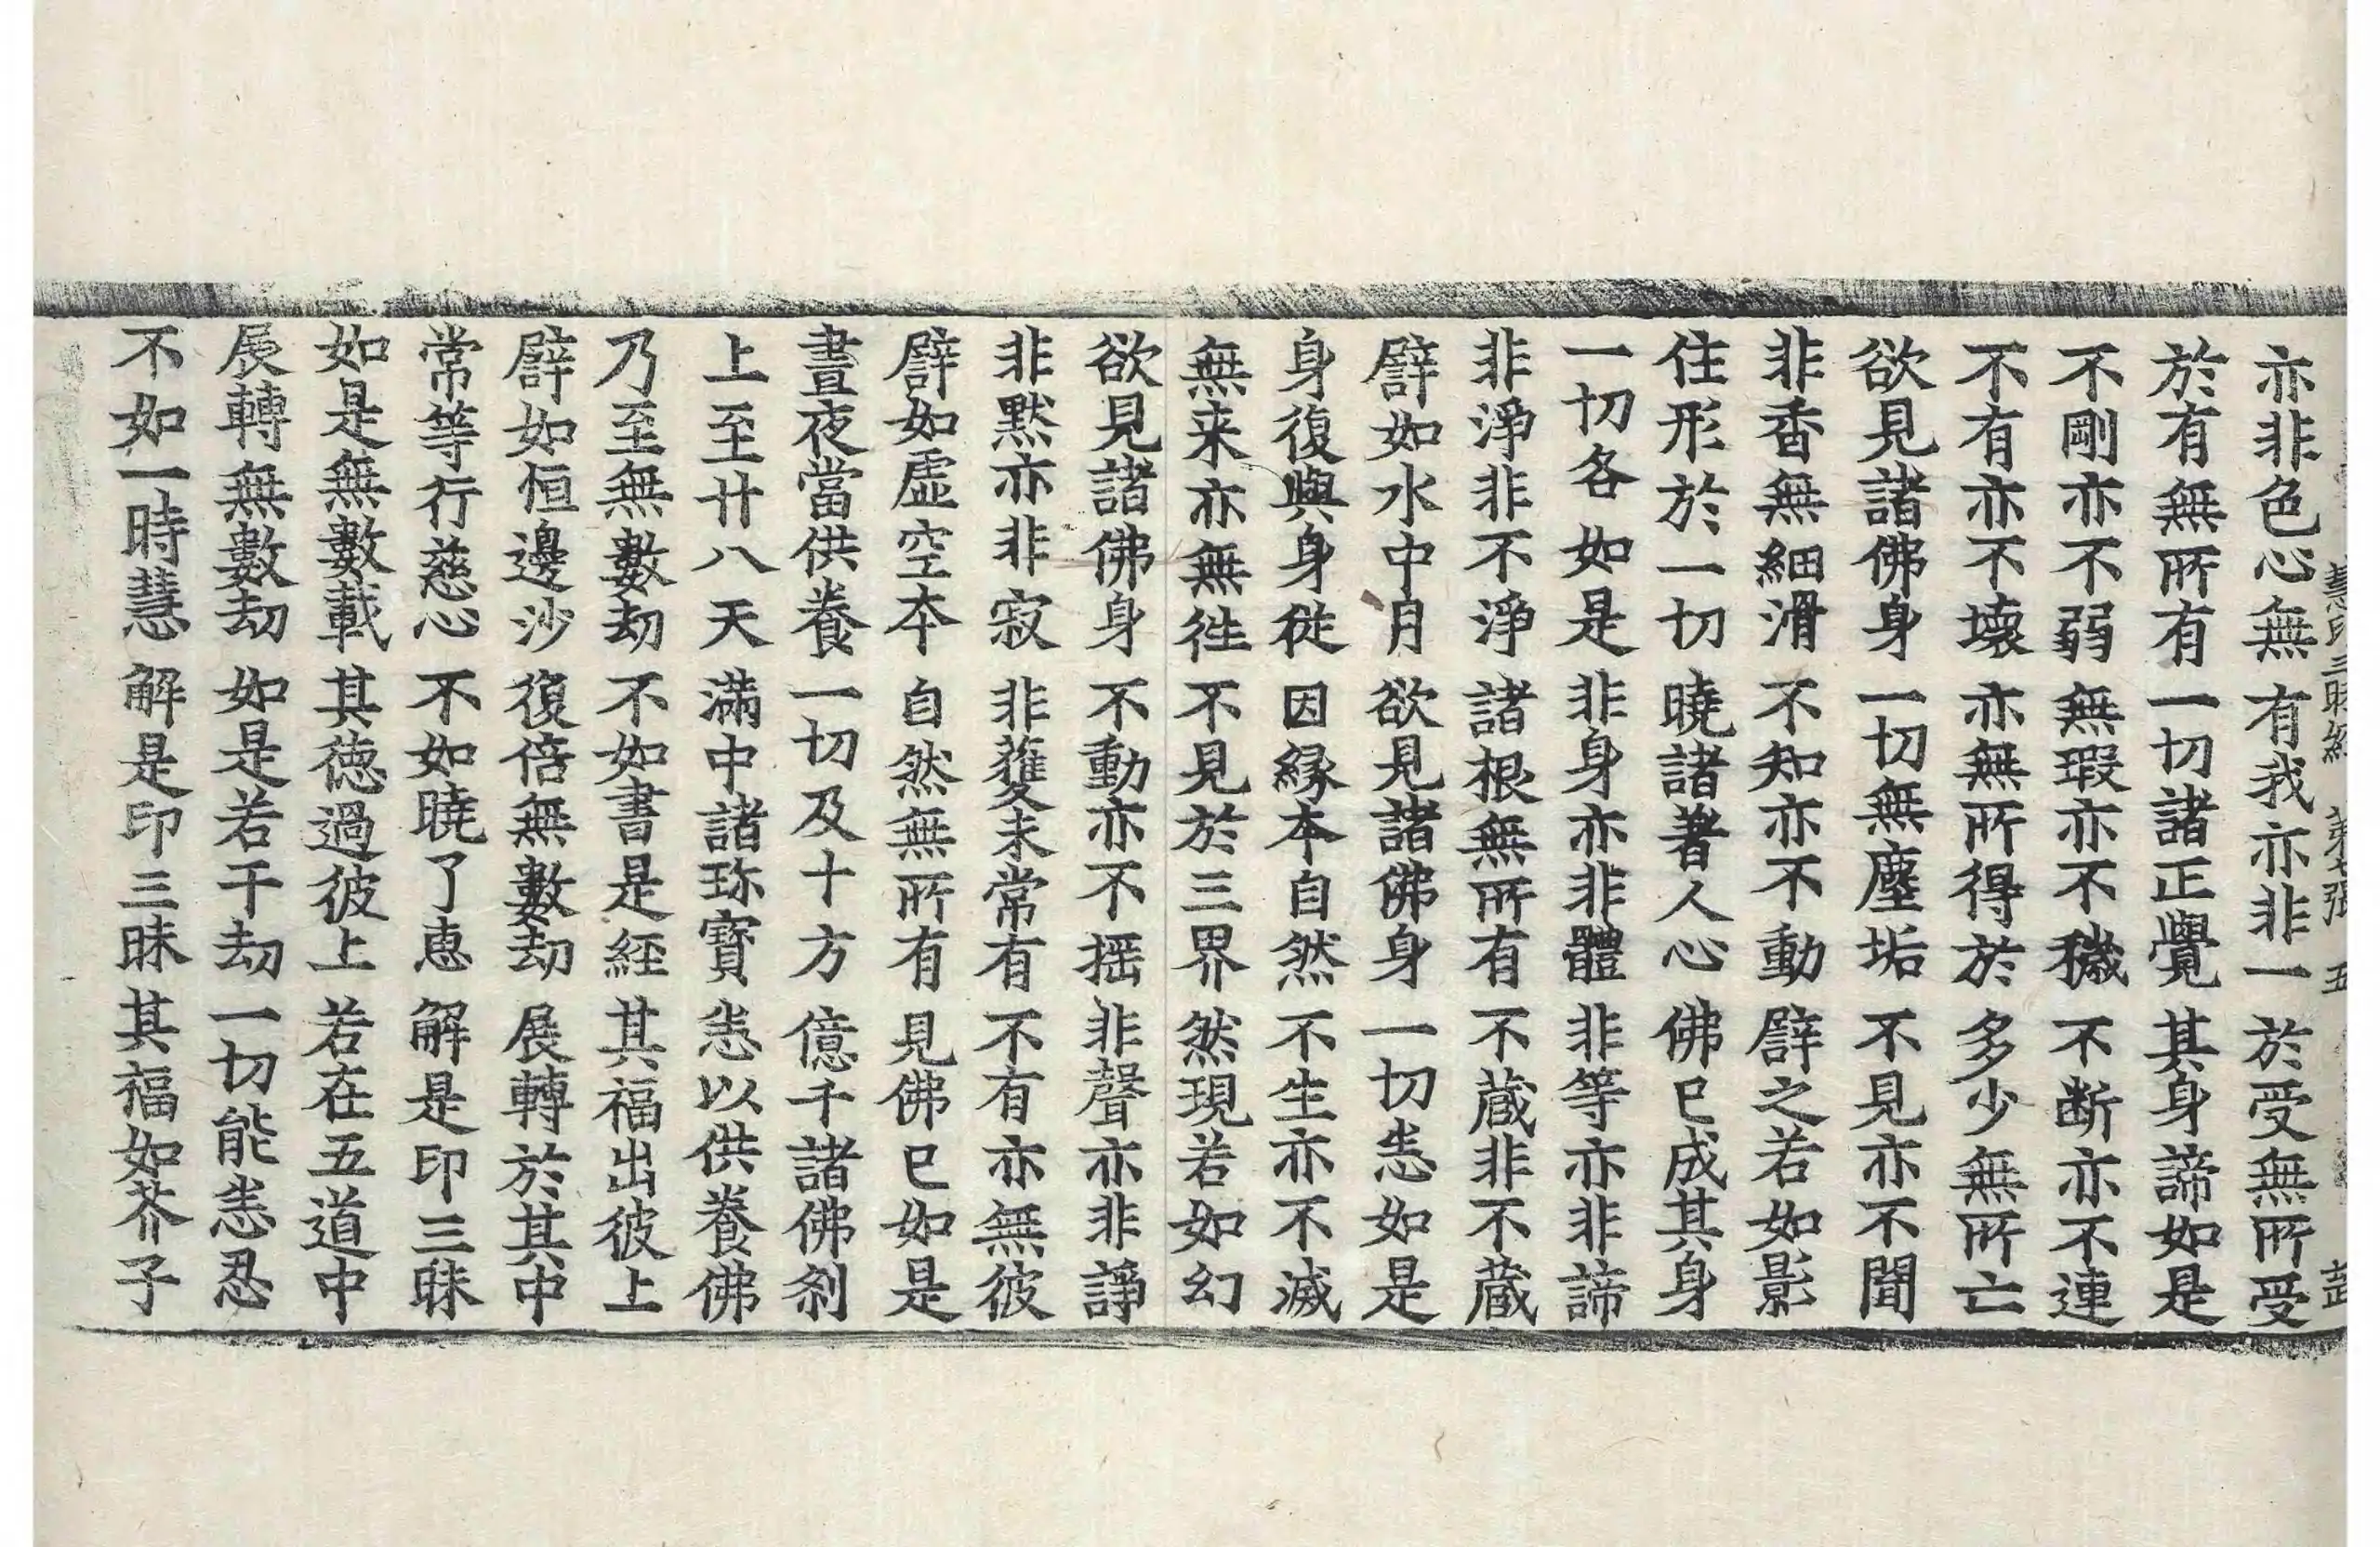 慧印三昧經 第七張 五 武
亦非色心無 有我亦非一 於受無所受
於有無所有 一切諸正覺 其身諦如是
不剛亦不弱 無瑕亦不穢 不断亦不連
不有亦不壞 亦無所得於 多少無所亡
欲見諸佛身 一切無塵垢 不見亦不聞
非香無細滑 不知亦不動 譬之若如影
住形於一切 曉諸著人心 佛已成其身
一切各如是 非身亦非體 非等亦非諦
非淨非不淨 諸根無所有 不蔵非不蔵
譬如水中月 欲見諸佛身 一切恙如是
身復與身從 因縁本自然 不生亦不滅
無来亦無徃 不見於三界 然現若如幻
欲見諸佛身 不動亦不揺 非聲亦非諍
非黙亦非寂 非蓰未常有 不有亦無彼
譬如虛空本 自然無所有 見佛已如是
晝夜當供養 一切及十方 億千諸佛刹
上至廿八天 滿中諸珎寶 恙以供養佛
乃至無數劫 不如書是経 其福出彼上
譬如恒邊沙 復倍無數劫 展轉於其中
常等行慈心 不如曉了恵 解是印三昧
如是無數載 其徳過彼上 若在五道中
展轉無數劫 如是若干劫 一切能恙忍
不如一時慧 解是印三昧 其福如芥子